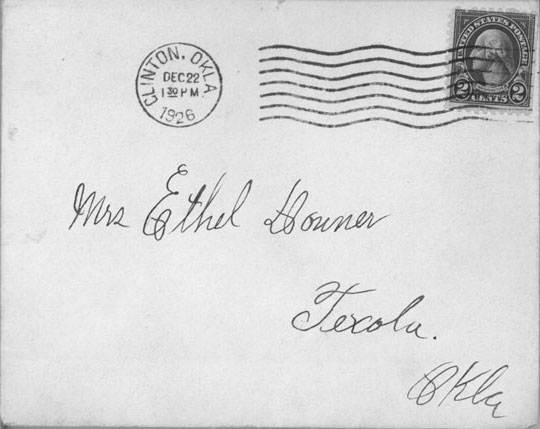 CLINTON, OKLA.
DEC 22
1 30 PM
1926
UNITED STATES POSTAGE
2 CENTS 2
Mrs Ethel Downer
Texola.
Okla